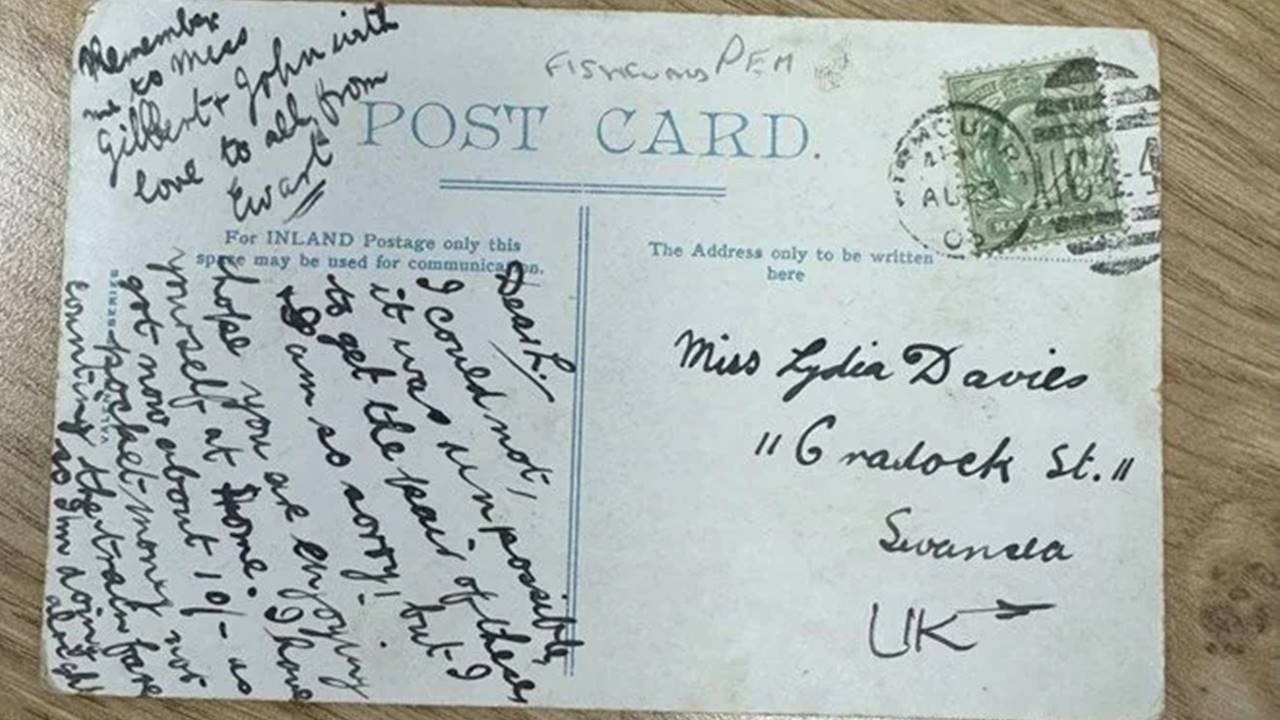 Remember
me to Miss
Gilbert + John with
love to all from
Ewart
FISHGUARD PEM
POST CARD.
AU 23
For INLAND Postage only this
space may be used for communication.
The Address only to be written
here
Dear L.
I could not,
it was impossible,
to get the pair of these
I am so sorry! but I
hope you are enjoying
yourself at home. I have
got now about 10/- as
pocket-money not
counting the train fare
so I'm doing alright
Miss Lydia Davies
"Cradock St."
Swansea
UK